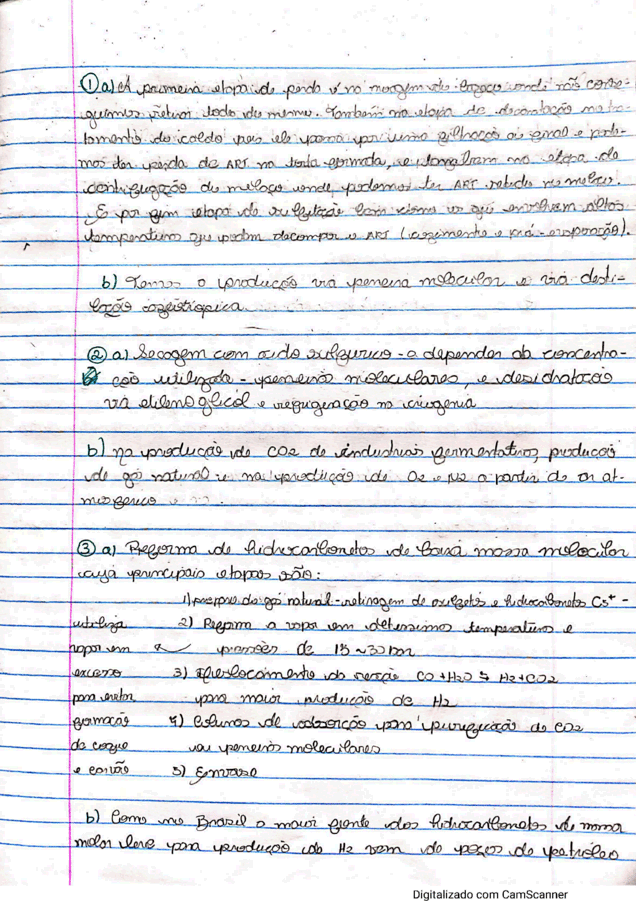 ① a) A primeira etapa de perda é na moagem do bagaço onde não conse-
guimos retirar todo do mesmo. Também na etapa de decantação no tra-
tamento do caldo pois ele passa por uma filtração ao final e pode-
mos ter perda de ART na torta formada, e também na etapa de
centrifugação do melaço onde podemos ter ART retido no melaço.
E por fim etapa de sulfitação bem como as que envolvem altas
temperaturas que podem decompor o ART (cozimento e pré-evaporação).
b) Temos a produção via peneira molecular e via desti-
lação azeotrópica.
② a) Secagem com ácido sulfúrico - a depender da concentra-
ção utilizada - peneiras moleculares, e desidratação
via etileno glicol e refrigeração na criogenia
b) na produção de CO2 de indústrias fermentativas, produção
de gás natural e na produção de O2 e N2 a partir do ar at-
mosférico
③ a) Reforma de hidrocarbonetos de baixa massa molecular
cuja principais etapas são:
1) preparo do gás natural - retiragem de sulfetos e hidrocarbonetos C5+ -
2) Reforma a vapor em temperatura e
pressões de 15 ~ 30 bar
utiliza
vapor em
excesso
para evitar
formação
de coque
e carvão
3) deslocamento da reação CO + H2O ⇆ H2 + CO2
para maior produção de H2
4) Colunas de adsorção para purificação do CO2
via peneiras moleculares
5) Envase
b) Como no Brasil a maior fonte dos hidrocarbonetos de massa
molar leve para produção do H2 vem de poços de petróleo
Digitalizado com CamScanner